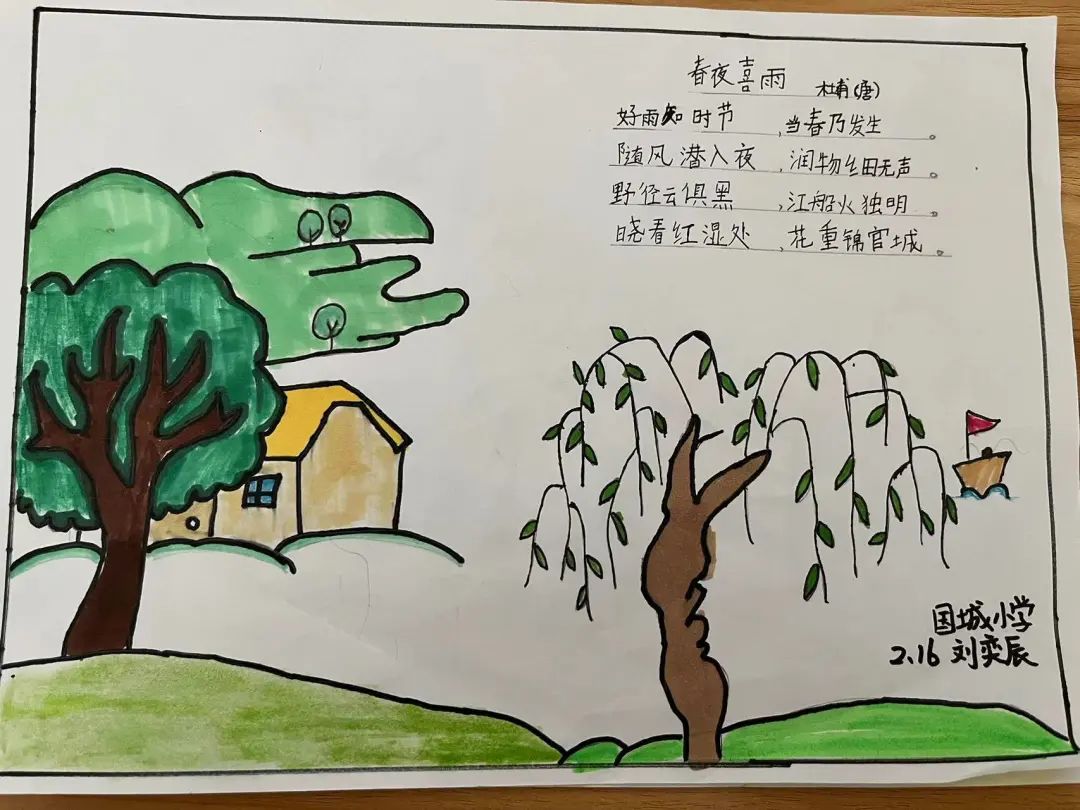 春夜喜雨
杜甫(唐)
好雨知时节,当春乃发生。
随风潜入夜,润物细无声。
野径云俱黑,江船火独明。
晓看红湿处,花重锦官城。
国城小学
2.16 刘奕辰